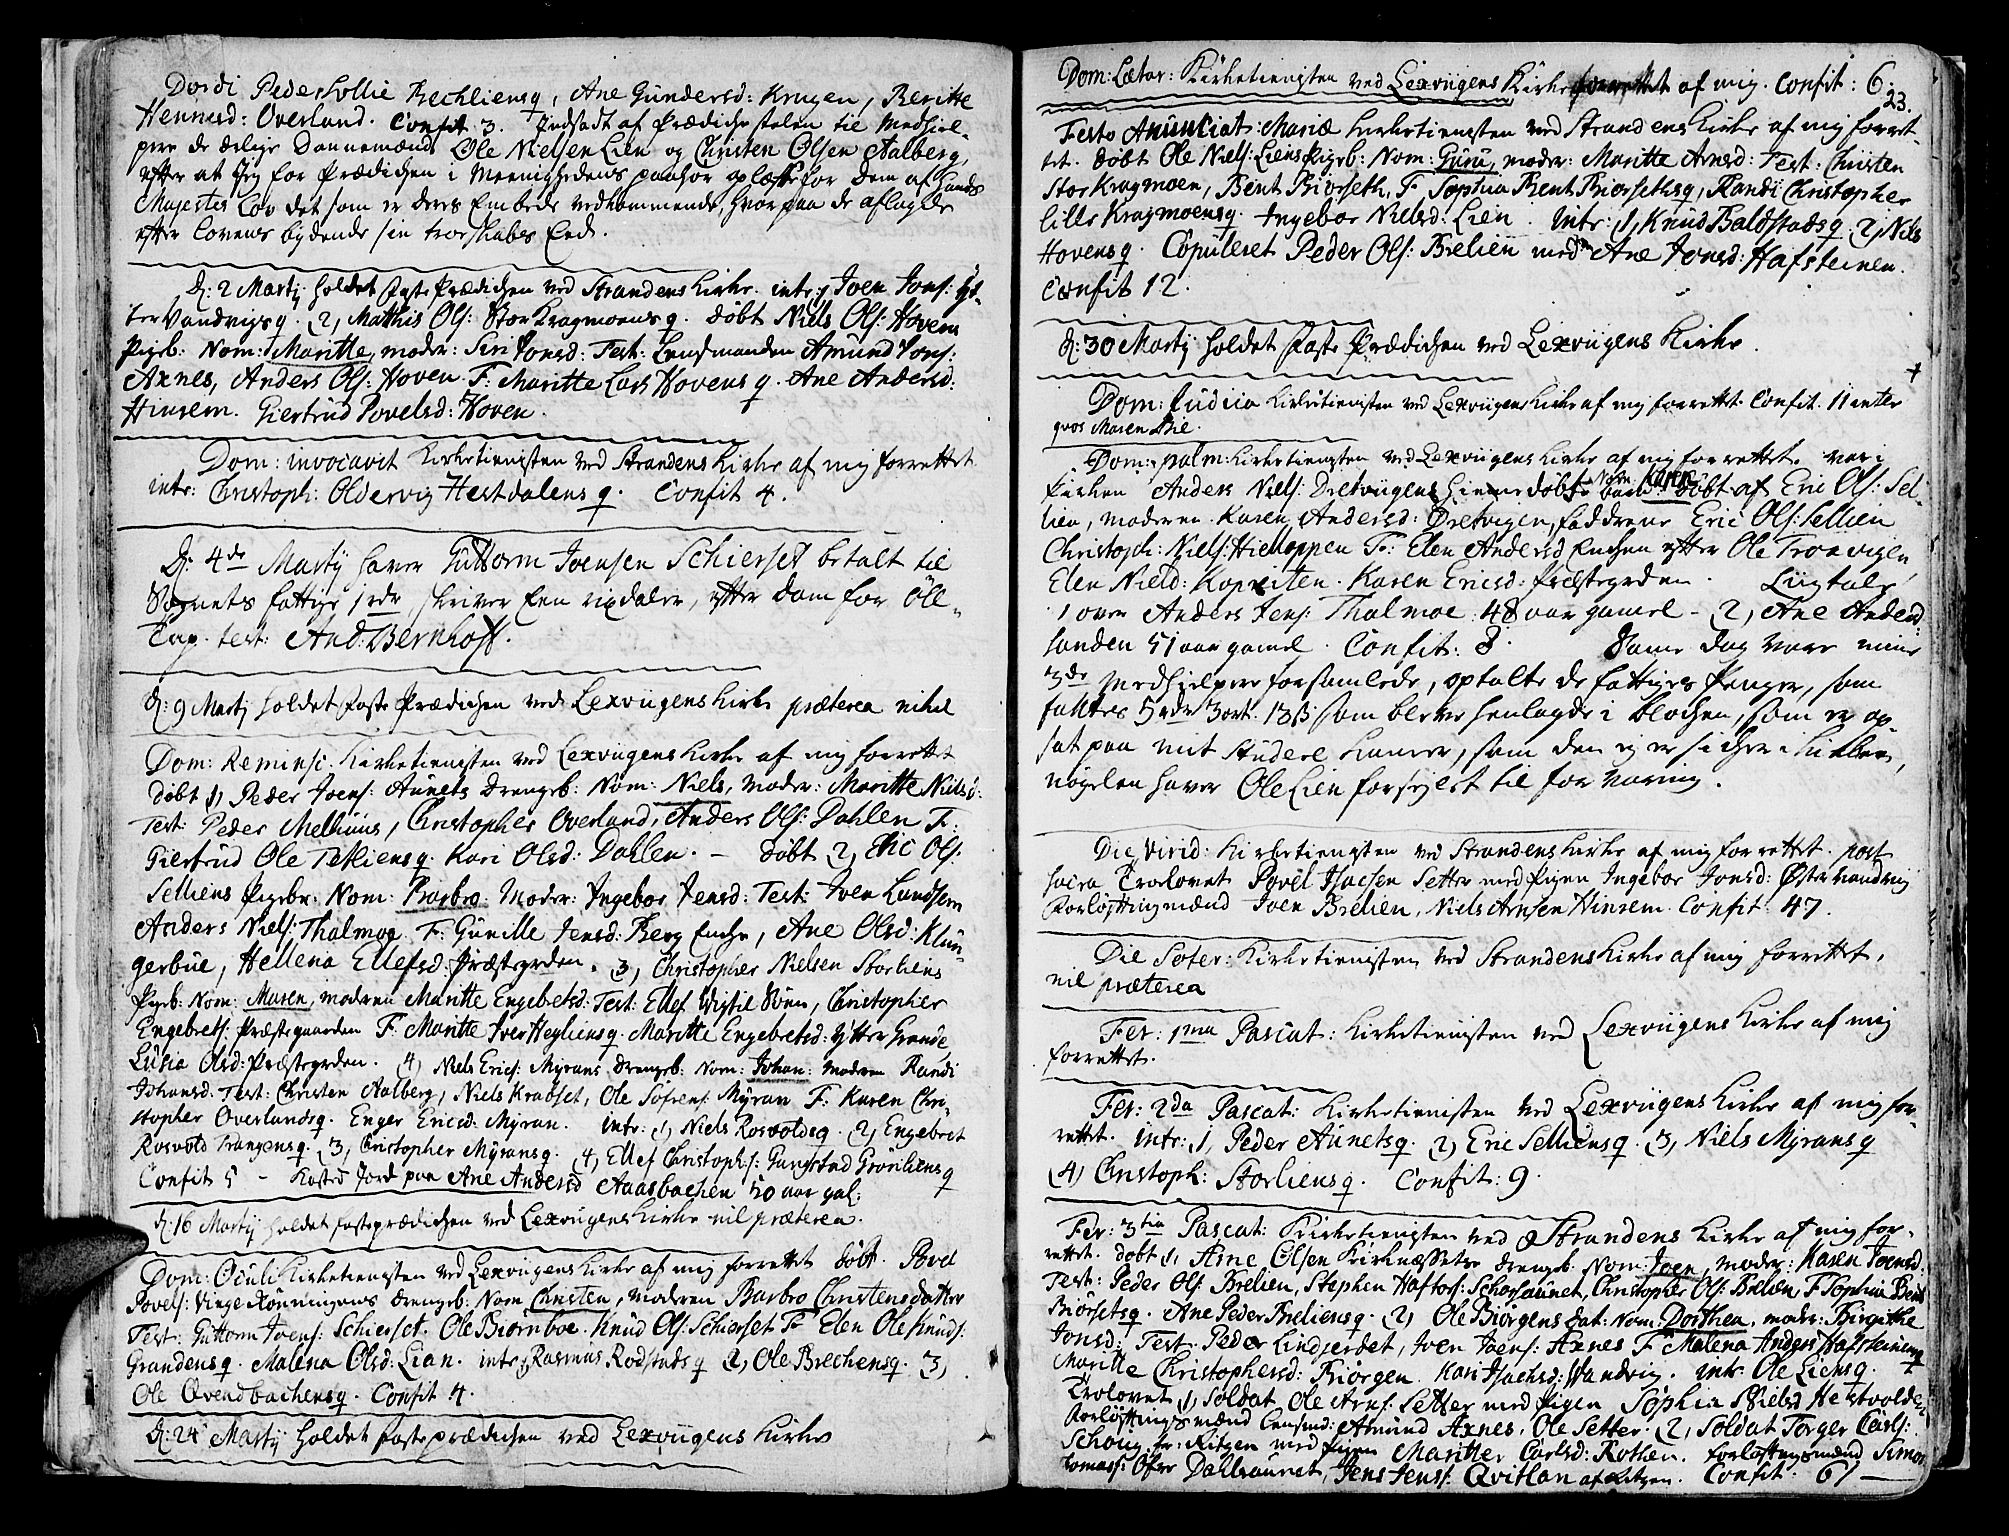 Dordi Peder Sollie Rechliensq, Ane Gundersd: Krugen, Beritte
Hennersd: Overland. Confit 3. Indsadt af Prædichestolen til Medhiel-
pere de ærlige Dannemænd Ole Nielsen Lien og Christen Olsen Aalberg,
efter at Jeg for Prædichen i Meenighedens paahør oplæste for dem af Hands
Majestets Lov det som er deres Embede vedkommende, hvorpaa de aflagde
efter Lovens bydende sin troeskabs Eed.
D: 2 Martij holdet faste Prædichen ved Strandens Kirke. intr: 1, Joen Jons: Øs-
ter Vandvigsq. 2, Mathis Ols: Stor Kragmoensq. døbt Niels Ols: Hovens
Pigeb: Nom: Maritte, moder: Siri Jonsd: Test: Lensmanden Amund Jons:
Axnes, Anders Ols: Hoven. F: Maritte Lars Hovensq. Ane Andersd:
Hinsem. Giertrud Povelsd: Hoven.
Dom: invocavit Kirketienesten ved Strandens Kirke af mig forrettet
intr: Christoph: Oldervig Hestdalensq. Confit 4.
D: 4de Martij haver Guttorm Joensen Schierset betalt til
Sognets fattige 1 rdr, skriver Een rixdaler, efter dom for Øll-
Tap. test: And: Bernhoff.
D: 9 Martij holdet faste Prædichen ved Lexvigens Kirke præterea nihil
Dom: Reminsc: Kirketienesten ved Lexvigens Kirke af mig forrettet
døbt 1, Peder Joens: Aunets drengeb: Nom: Niels, moder: Maritte Nielsd:
Test: Peder Melhuus, Christopher Overland, Anders Ols: Dahlen F:
Giertrud Ole Tetliensq. Kari Olsd: Dahlen. - døbt 2, Eric Ols:
Selliens Pigebr: Nom: Barbro. Moder: Ingebor Jensd: Test: Iver Landsem
Anders Niels: Thalmoe. F: Gunille Jensd: Berg Enche, Ane Olsd: Klun-
gerbue, Hellena Ellefsd: Præstegrden. 3, Christopher Nielsen Storliens
Pigeb: Nom: Maren, moderen Maritte Engebretsd: Test: Ellef Vigtil Søen, Christopher
Engebrets: Præstegaarden F: Maritte Iver Heyliensq. Maritte Engebretsd: Ytter Grande
Lusia Olsd: Præstegrden. 4, Niels Erics: Myrans drengeb: Nom: Johan: moderen Randi
Johansd. Test: Christen Aalberg, Niels Krabset, Ole Sørens: Myran F: Karen Chri-
stopher Overlandsq. Enger Ericsd: Myran. intr: 1, Niels Rosvoldsq. 2, Engebret
Rosvold Trangensq. 3, Christopher Myransq. 4, Ellef Christophs: Gangstad Grønliensq
Confit 5 - Kasted Jord paa Ane Andersd Aaasbachen 50 aar gal:
D: 16 Martij holdet fasteprædichen ved Lexvigens Kirke nil præterea.
Dom: Oculi Kirketienesten ved Lexvigens Kirke af mig forrettet døbt. Povel
Povels: Vinge Rønningens drengeb: Nom Christen, moderen Barbro Christensdatter
Test: Guttorm Joens: Schierset. Ole Biørnboe. Knud Ols: Schierset F: Elen Ole Knuds:
Grandensq. Malena Olsd: Lian. intr: 1, Rasmus Rodstadsq 2, Ole Brechensq. 3,
Ole Qvendbachensq. Confit 4.
D: 24 Martij holdet fasteprædichen ved Lexvigens Kirke
Dom: Lætar: Kirketienesten ved Lexvigens Kirke forrettet af mig. Confit: 6.
23.
Festo Anunciat: Mariæ Kirketienesten ved Strandens Kirke af mig forret-
tet. døbt Ole Niels: Liens Pigeb: Nom: Guru, moder: Maritte Arnsd: Test: Christen
Stor Kragmoen, Bent Biørseth, F: Sophia Bent Biørsethsq, Randi Christopher
lille Kragmoensq. Ingebor Nielsd: Lien. intr: 1, Knud Baldstadsq. 2, Niels
Hovensq. Copuleret Peder Ols: Brelien med Ane Jonsd: Hafsteinen.
Confit 12.
D: 30 Martij holdet faste Prædichen ved Lexvigens Kirke.
Dom: Judica Kirketienesten ved Lexvigens Kirke af mig forrettet. Confit. 11 inter
quos Maren Bie.
Dom: palm: Kirketienesten ved Lexvigens Kirke af mig forrettet. var i
Kirken Anders Niels: Dretvigens hiemedøbte barn Nom: Karen døbt af Eric Ols: Sel-
lien, moderen Karen Andersd: Dretvigen, fadderne Eric Ols: Sellien
Christoph: Niels: Hielloppen F: Elen Andersd Enchen efter Ole Troavigen,
Elen Nielsd: Kopreiten. Karen Ericsd: Præstegrden. Liigtale
1 over Anders Jens: Thalmoe 48 aar gamel - 2, Ane Andersd:
Sanden 51 aar gamel. Confit: 8. Same dag vare mine
3de Medhielpere forsamlede, optalte de fattiges Penger, som
fantes 5 rdr 3 ort. 13 ß som bleve henlagde i blochen, som er op-
sat paa mit Studere kamer, som den ej er sicher i Kirken,
nøgelen haver Ole Lien forseylet til forvaring.
Die Virid: Kirketienesten ved Strandens Kirke af mig forrettet. post
sacra Trolovet Povel Isacsen Setter med Pigen Ingebor Jonsd: Østervandvig
Forløftingmænd Joen Brelien, Niels Arnsen Hinsem. Confit: 47.
Die Soter: Kirketienesten ved Strandens Kirke af mig forrettet,
nil præterea
Fer: 1ma Pascat: Kirketienesten ved Lexvigens Kirke af mig
forrettet.
Fer: 2da Pascat: Kirketienesten ved Lexvigens Kirke af mig for-
rettet. intr: 1, Peder Aunetsq. 2, Eric Selliensq. 3, Niels Myransq
4, Christoph: Storliensq. Confit: 9.
Fer: 3tia Pascat: Kirketienesten ved Strandens Kirke af mig for-
rettet. døbt 1, Arne Olsen Kirknessets drengeb: Nom: Joen, moder: Karen Joensd.
Test: Peder Ols: Brelien, Stephen Haftors: Schorsaunet, Christopher Ols: Brelien F Sophia Bent
Biørsetsq. Ane Peder Breliensq. 2, Ole Biørgens dat: Nom: Dorthea, modr: Birgithe
Jonsd: Test. Peder Lindjerdet, Joen Joens: Axnes F Malena Anders Hafsteinensq
Maritte Christophersd: Biørgen. Kari Isachsd: Vandvig. intr. Ole Liensq.
Trolovet 1, Soldat Ole Arns: Setter med Pigen Sophia Nielsd Hestvolden
Forløftingsmænd Lensmd: Amund Axnes. Ole Setter. 2, Soldat Torger Carls:
Schoug fr: Ritzen med Pigen Maritte Carlsd: Rotaen. forløftingsmænd Simon
Tomass: Øfre Dahlsaunet, Jens Jens: Qvitlan af Ritzen. Confit: 61